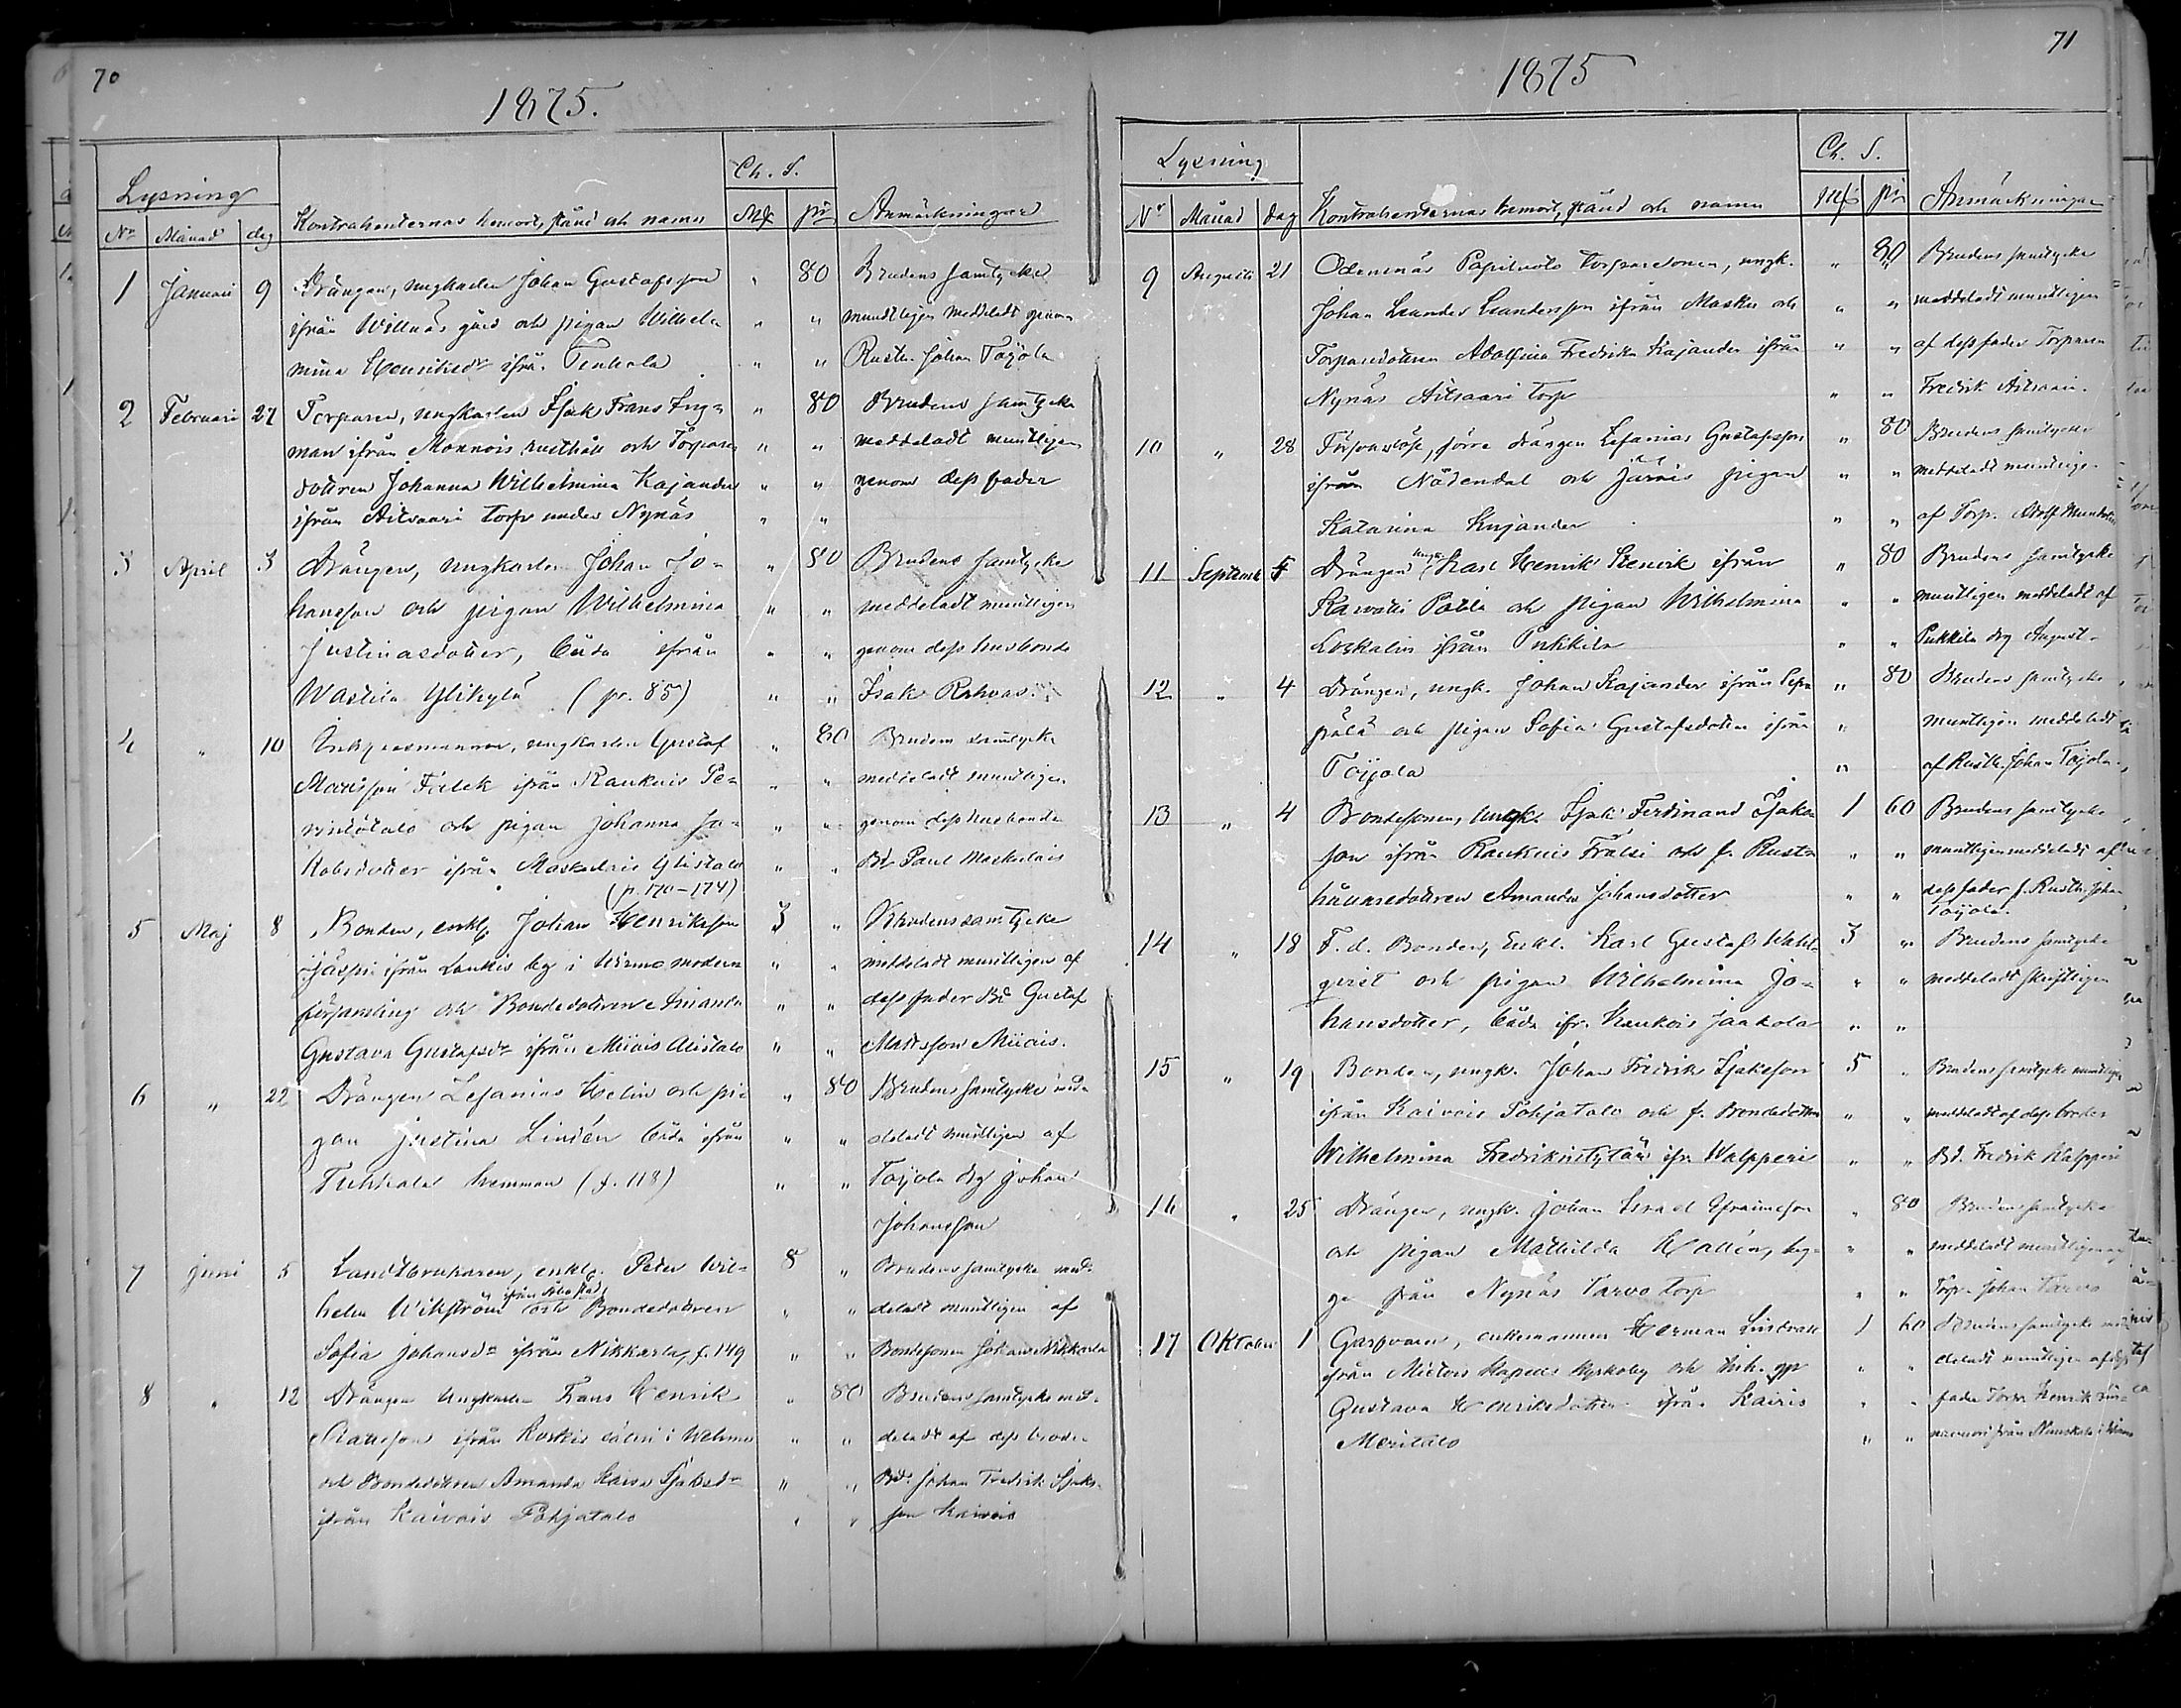 70
1875.
Lysning
Ch. S.
No Månad dag Kontrahenternas hemort, stånd och namn Mk pi Anmärkningar
1 Januari 9 Drängen, ungkarlen Johan Gustafsson " 80 Brudens samtycke
ifrån Willnäs gård och pigan Wilhel= " " muntligen meddeladt genom
mina Henriksdr ifrån " " Rusth. Johan Toijola
2 Februari 27 Torparen, ungkarlen Isak Frans Eng= " 80 Brudens samtycke
man ifrån Monnois rusthåll och Torpare " " meddeladt muntligen
dottren Johanna Wilhelmina Kajander " " genom dess fader
ifrån Aitsaari torp under Nynäs " "
3 April 3 Drängen, ungkarlen Johan Jo= " 80 Brudens samtycke
hansson och pigan Wilhelmina " " meddeladt muntligen
Justinasdotter, båda ifrån " " genom dess husbonde
Wastila Ylikylä (pr. 85) " " Isak
4 " 10 ungkarlen Gustaf " 80 Brudens samtycke
Mattsson Falck ifrån Kankais " " meddeladt muntligen
och pigan Johanna Ja= " " genom dess husbonde
kobsdotter ifrån Maskulais Ylistalo " " Bd Paul Maskulais
(p. 170-174)
5 Maj 8 Bonden, enkl. Johan Henriksson 3 " Brudens samtycke
ifrån by i Wirmo moder= " " meddeladt muntligen af
församling och Bondedottren Amanda " " dess fader Bd Gustaf
Gustava Gustafsdr ifrån Miiais Alistalo " " Mattsson Miiais.
6 " 22 Drängen Zefanias Helin och pi= " 80 Brudens samtycke med=
gan Justina Lindén båda ifrån " " deladt muntligen af
hemman (f. 118) " " Toijola Johan
Johansson
7 Juni 5 Landtbrukaren, enkl. Peter Wil= 8 " Brudens samtycke med=
ifrån Åbo stad
helm Wikström och Bondedottren " " deladt muntligen af
Sofia Johansdr ifrån Nikkarla, f. 149 " " Bondesonen Johan Nikkarla
8 " 12 Drängen Ungkarlen Frans Henrik " 80 Brudens samtycke med=
ifrån i Wehmo " " deladt af dess broder
och Bondedottren Amanda Isaksdr " " Bd. Johan Fredrik Isaks=
ifrån Kaivais Pohjatalo " " son Kaivais
71
1875
Lysning
Ch. S.
No Månad dag Kontrahenternas hemort, stånd och namn Mk pi Anmärkningar
9 Augusti 21 Odenenäs torparesonen, ungk. " 80 Brudens samtycke
Johan Leander Leandersson ifrån Masku och " " meddeladt muntligen
Torparedottren Adolfina Fredrika Kajander ifrån " " af dess fader Torparen
Nynäs Aitsaari torp " " Fredrik Aitsaari.
10 " 28 förre drängen Zefanias Gustafsson " 80 Brudens samtycke
ifrån Nådendal och Järais pigan " " meddeladt muntlige=
Katarina Kajander " " af Torp. Adolf
11 September Drängen ungk. Karl Henrik ifrån " 80 Brudens samtycke
och pigan Wilhelmina " " muntligen meddeladt af
ifrån Pukkila " " Pukkila August
12 " 4 Drängen, ungk. Johan Kajander ifrån " 80 Brudens samtycke
och pigan Sofia Gustafsdotter ifrån " muntligen meddeladt
Toijola " af Rusth. Johan Toijola.
13 " 4 Bondesonen, ungk. Isak Ferdinand Isaks= 1 60 Brudens samtycke
son ifrån Kankais Frälsi och f. Rust= " " muntligen meddeladt af
hållaredottren Amanda Johansdotter " " dess fader f. Rusth. Johan
Toijola.
14 " 18 F. d. Bonden, Enkl. Karl Gustaf Wahl= 3 " Brudens samtycke
qvist och pigan Wilhelmina Jo= " " meddeladt skriftligen
hansdotter, båda ifr. Kankais Jaakola " "
15 " 19 Bonden, ungk. Johan Fredrik Isaksson 5 " Brudens samtycke muntligen
ifrån Kaivais Pohjatalo och f. Bondedottren " " meddeladt af dess broder
Wilhelmina ifr. Walpperi " " Bd. Fredrik Walpperi
16 " 25 Drängen, ungk. Johan Israel Efraimsson " 80 Brudens samtycke
och pigan Mathilda Hallén, beg= " " meddeladt muntligen af
ge från Nynäs Tarvo torp " " Torp. Johan Tarvo
17 Oktober 1 Garfvaren, enkemannen Herman 1 60 Brudens samtycke med=
ifrån Kapells Kyrkoby och " " deladt muntligen af dess
Gustava Henriksdotter ifrån Kairis " " fader Torp. Henrik
Meritalo " "